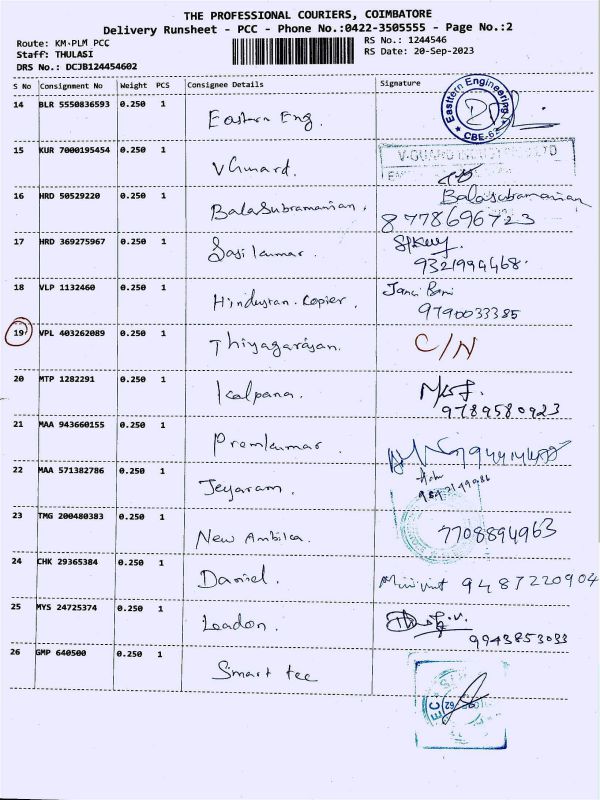 THE PROFESSIONAL COURIERS, COIMBATORE
Delivery Runsheet - PCC - Phone No.:0422-3505555 - Page No.:2
Route: KM-PLM PCC
Staff: THULASI
DRS No.: DCJB124454602
RS No.: 1244546
RS Date: 20-Sep-2023
S No Consignment No Weight PCS Consignee Details Signature
14 BLR 5550836593 0.250 1 Eastern Eng. Easttern Engineering CBE-62
15 KUR 7000195454 0.250 1 V Guard. V-GUARD LTD
16 HRD 50529220 0.250 1 BalaSubramanian. Balasubramanian
8778696723
17 HRD 369275967 0.250 1 Sasikumar.
9321994468.
18 VLP 1132460 0.250 1 Hindustan Copier.
9790033385
19 VPL 403262089 0.250 1 Thiyagarajan. C/N
20 MTP 1282291 0.250 1 Kalpana.
9789580923
21 MAA 943660155 0.250 1 Premkumar.
22 MAA 571382786 0.250 1 Jeyaram.
23 TMG 200480383 0.250 1 New Ambika. 7708894963
24 CHK 29365384 0.250 1 Daniel. 9487220904
25 MYS 24725374 0.250 1 Leadon.
9943853033
26 GMP 640500 0.250 1 Smart tec